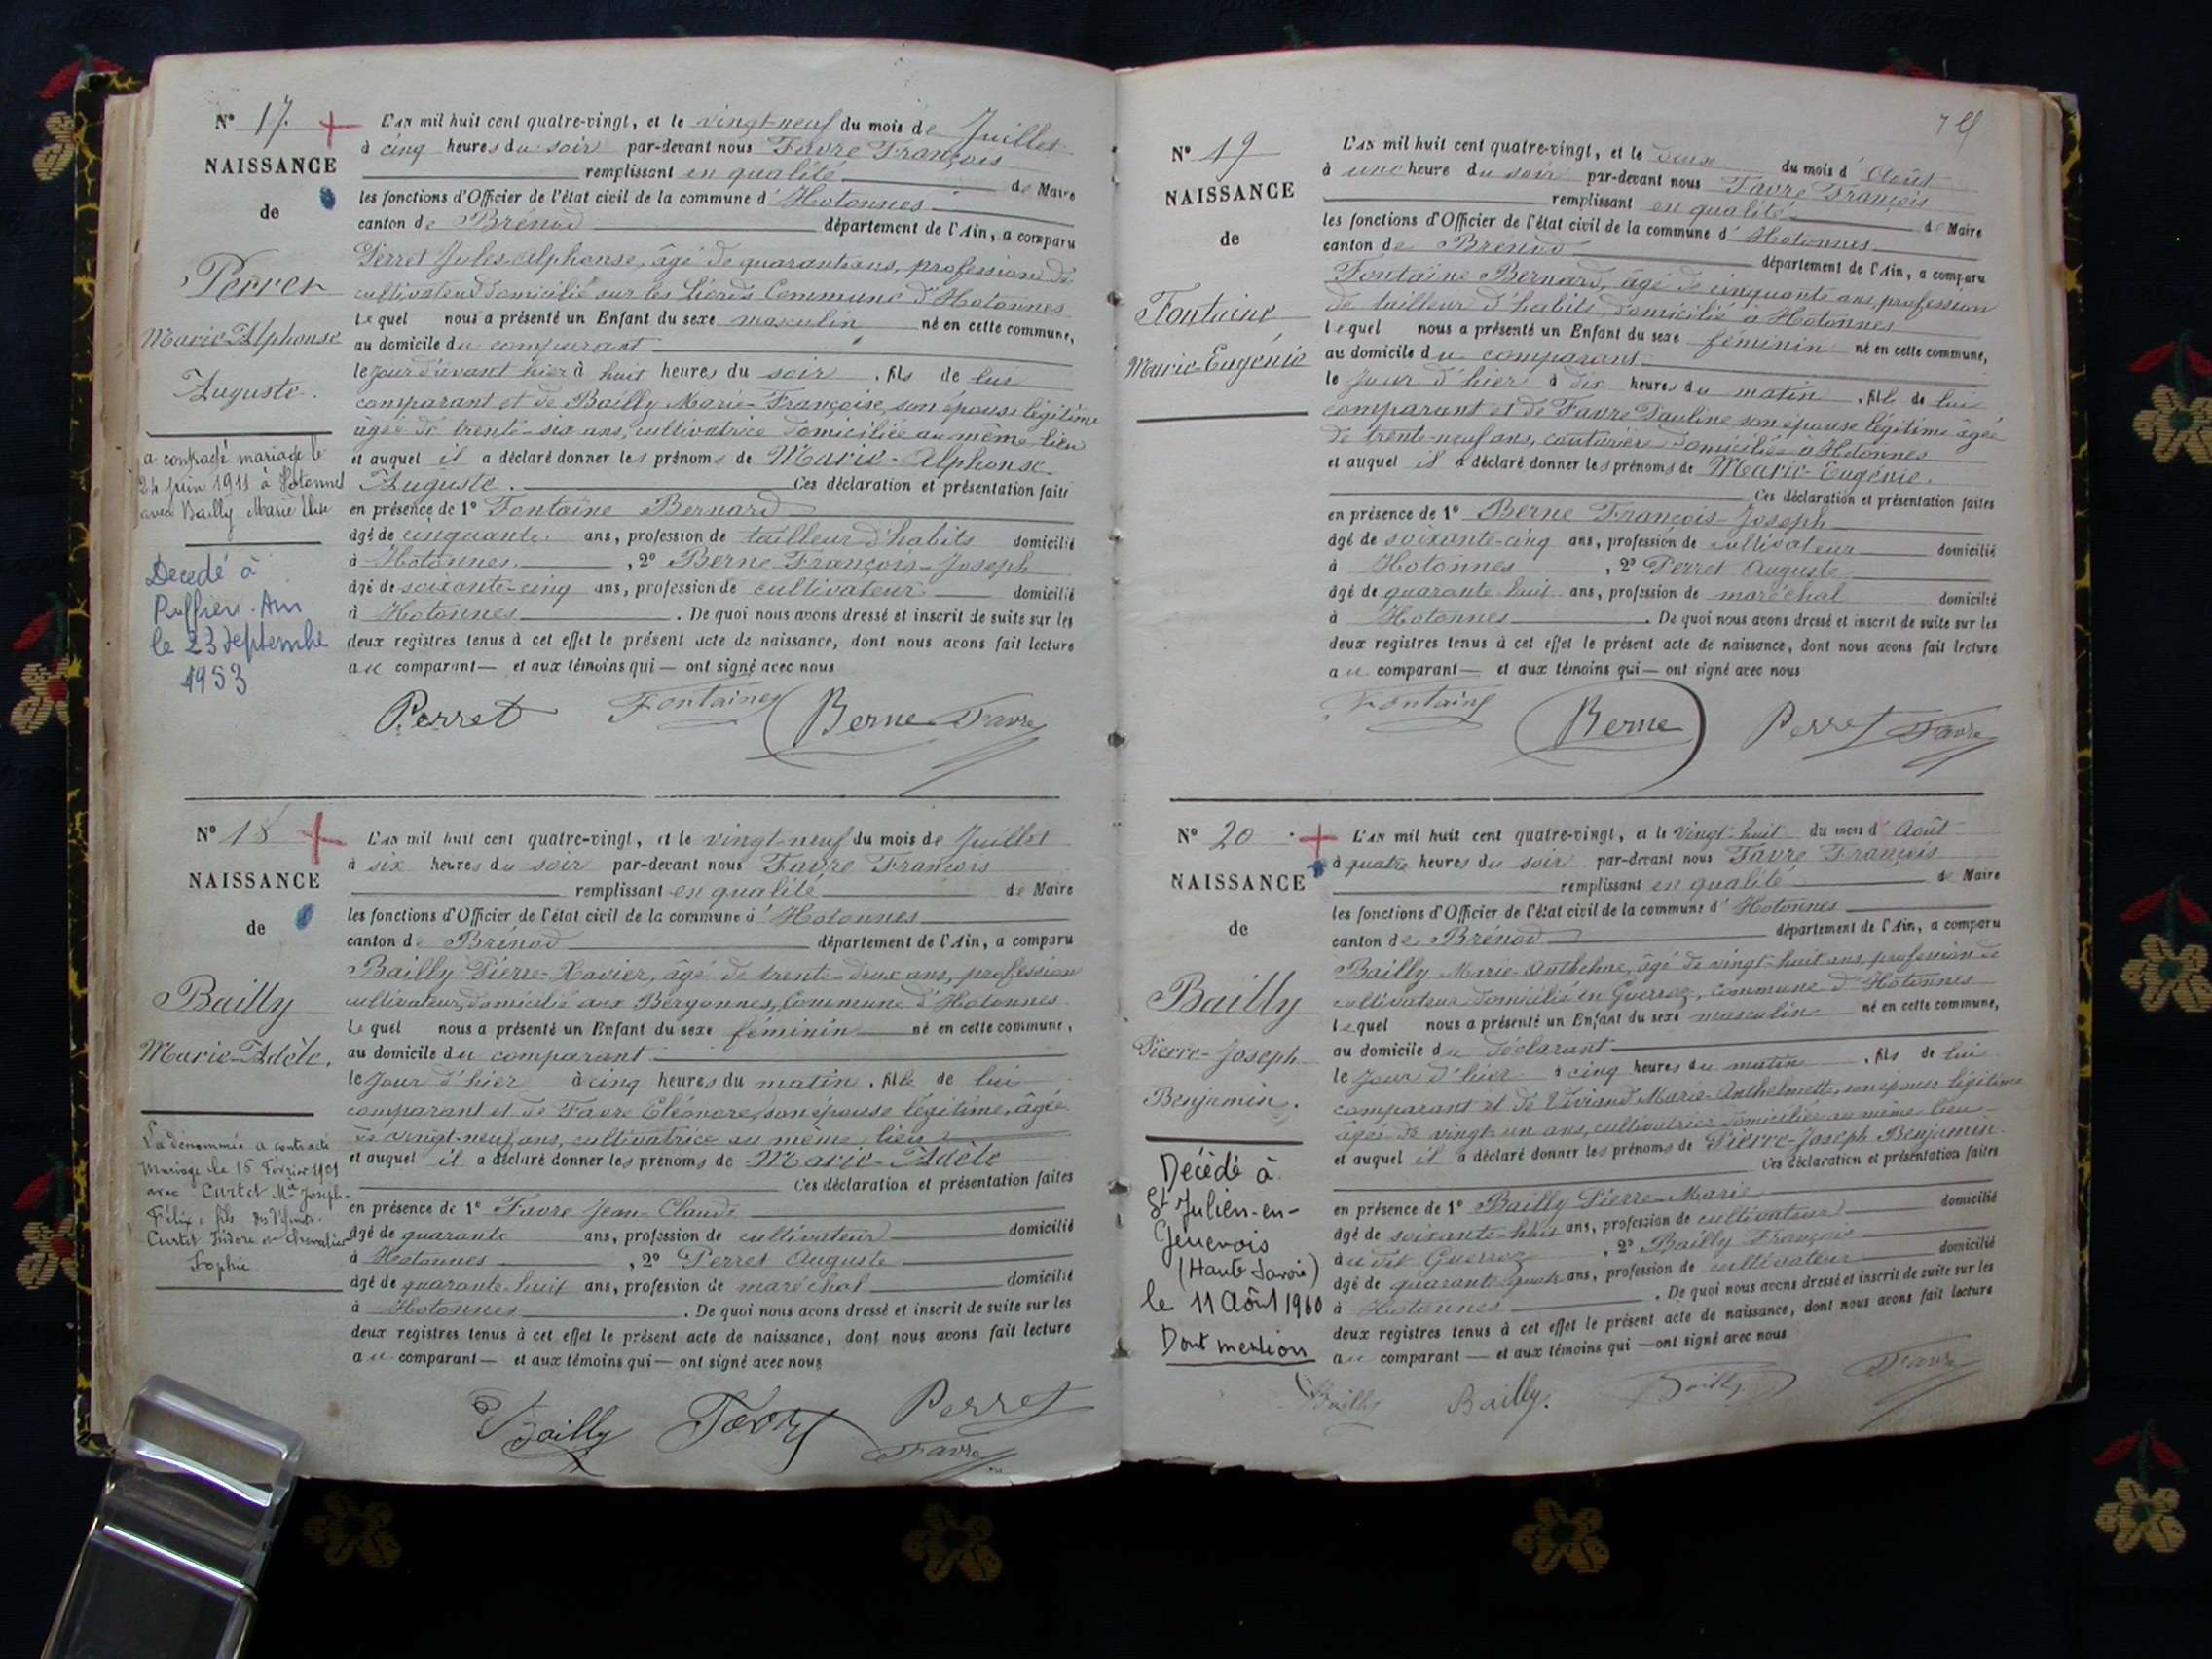 N° 17
NAISSANCE
de
Perret
Marie-Alphonse
Auguste.
a contracté mariage le
24 juin 1911 à Hotonnes
avec Bailly Marie Elise
Decedé à
Ruffieu. Ain
le 23 septembre
1953
L'AN mil huit cent quatre-vingt, et le vingt-neuf du mois de Juillet
à cinq heures du soir par-devant nous Favre François
remplissant en qualité de Maire
les fonctions d'Officier de l'état civil de la commune d'Hotonnes
canton de Brénod département de l'Ain, a comparu
Perret Jules Alphonse, âgé de quarante ans, profession de
cultivateur domicilié sur les Commune d'Hotonnes
Lequel nous a présenté un Enfant du sexe masculin né en cette commune,
au domicile du comparant
le jour d'avant hier à huit heures du soir, fils de lui
comparant et de Bailly Marie-Françoise, son épouse légitime
agée de trente-six ans, cultivatrice domiciliée au même lieu
et auquel il a déclaré donner les prénoms de Marie-Alphonse-
Auguste. Ces déclaration et présentation faites
en présence de 1° Fontaine Bernard
âgé de cinquante ans, profession de tailleur d'habits domicilié
à Hotonnes, 2° Berne François-Joseph
âgé de soixante-cinq ans, profession de cultivateur domicilié
à Hotonnes. De quoi nous avons dressé et inscrit de suite sur les
deux registres tenus à cet effet le présent acte de naissance, dont nous avons fait lecture
au comparant — et aux témoins qui — ont signé avec nous
Perret Fontaine Berne Favre
N° 18
NAISSANCE
de
Bailly
Marie-Adèle.
La dénommée a contracté
Mariage le 15 Février 1901
avec Curtet Mie Joseph-
Félix, fils des défunts
Curtet Isidore et Chevalier
Sophie
L'AN mil huit cent quatre-vingt, et le vingt-neuf du mois de Juillet
à six heures du soir par-devant nous Favre François
remplissant en qualité de Maire
les fonctions d'Officier de l'état civil de la commune d'Hotonnes
canton de Brénod département de l'Ain, a comparu
Bailly Pierre-Xavier, âgé de trente-deux ans, profession
cultivateur, domicilié aux Bergonnes, Commune d'Hotonnes
Lequel nous a présenté un Enfant du sexe féminin né en cette commune,
au domicile du comparant
le jour d'hier à cinq heures du matin, fille de lui
comparant et de Favre Eléonore, son épouse légitime, âgée
de vingt-neuf ans, cultivatrice au même lieu
et auquel il a déclaré donner les prénoms de Marie-Adèle
Ces déclaration et présentation faites
en présence de 1° Favre Jean-Claude
âgé de quarante ans, profession de cultivateur domicilié
à Hotonnes, 2° Perret Auguste
âgé de quarante-huit ans, profession de maréchal domicilié
à Hotonnes. De quoi nous avons dressé et inscrit de suite sur les
deux registres tenus à cet effet le présent acte de naissance, dont nous avons fait lecture
au comparant — et aux témoins qui — ont signé avec nous
Bailly Favre Perret
Favre
N° 19
NAISSANCE
de
Fontaine
Marie-Eugénie
L'AN mil huit cent quatre-vingt, et le deux du mois d'Août
à une heure du soir par-devant nous Favre François
remplissant en qualité de Maire
les fonctions d'Officier de l'état civil de la commune d'Hotonnes
canton de Brénod département de l'Ain, a comparu
Fontaine Bernard, âgé de cinquante ans, profession
de tailleur d'habits, domicilié à Hotonnes
lequel nous a présenté un Enfant du sexe féminin né en cette commune,
au domicile du comparant
le jour d'hier à dix heures du matin, fille de lui
comparant et de Favre Pauline son épouse légitime âgée
de trente-neuf ans, couturière domiciliée à Hotonnes
et auquel il a déclaré donner les prénoms de Marie-Eugénie.
Ces déclaration et présentation faites
en présence de 1° Berne François-Joseph
âgé de soixante-cinq ans, profession de cultivateur domicilié
à Hotonnes, 2° Perret Auguste
âgé de quarante huit ans, profession de maréchal domicilié
à Hotonnes. De quoi nous avons dressé et inscrit de suite sur les
deux registres tenus à cet effet le présent acte de naissance, dont nous avons fait lecture
au comparant — et aux témoins qui — ont signé avec nous
Fontaine Berne Perret Favre
N° 20
NAISSANCE
de
Bailly
Pierre-Joseph
Benjamin.
Décédé à
St Julien-en-
Genevois
(Haute Savoie)
le 11 Août 1960
Dont mention
L'AN mil huit cent quatre-vingt, et le vingt-huit du mois d'Août
à quatre heures du soir par-devant nous Favre François
remplissant en qualité de Maire
les fonctions d'Officier de l'état civil de la commune d'Hotonnes
canton de Brénod département de l'Ain, a comparu
Bailly Marie-Anthelme, âgé de vingt-huit ans profession de
cultivateur domicilié en Guerroz, commune d'Hotonnes
lequel nous a présenté un Enfant du sexe masculin né en cette commune,
au domicile du déclarant
le jour d'hier à cinq heures du matin, fils de lui
comparant et de Viviand Marie-Anthelmette, son épouse légitime
âgée de vingt-un ans, cultivatrice domiciliée au même lieu
et auquel il a déclaré donner les prénoms de Pierre-Joseph Benjamin
Ces déclaration et présentation faites
en présence de 1° Bailly Pierre-Marie
âgé de ans, profession de cultivateur domicilié
audit Guerroz, 2° Bailly François
âgé de quarante ans, profession de cultivateur domicilié
à Hotonnes. De quoi nous avons dressé et inscrit de suite sur les
deux registres tenus à cet effet le présent acte de naissance, dont nous avons fait lecture
au comparant — et aux témoins qui — ont signé avec nous
Bailly Bailly. Bailly Favre